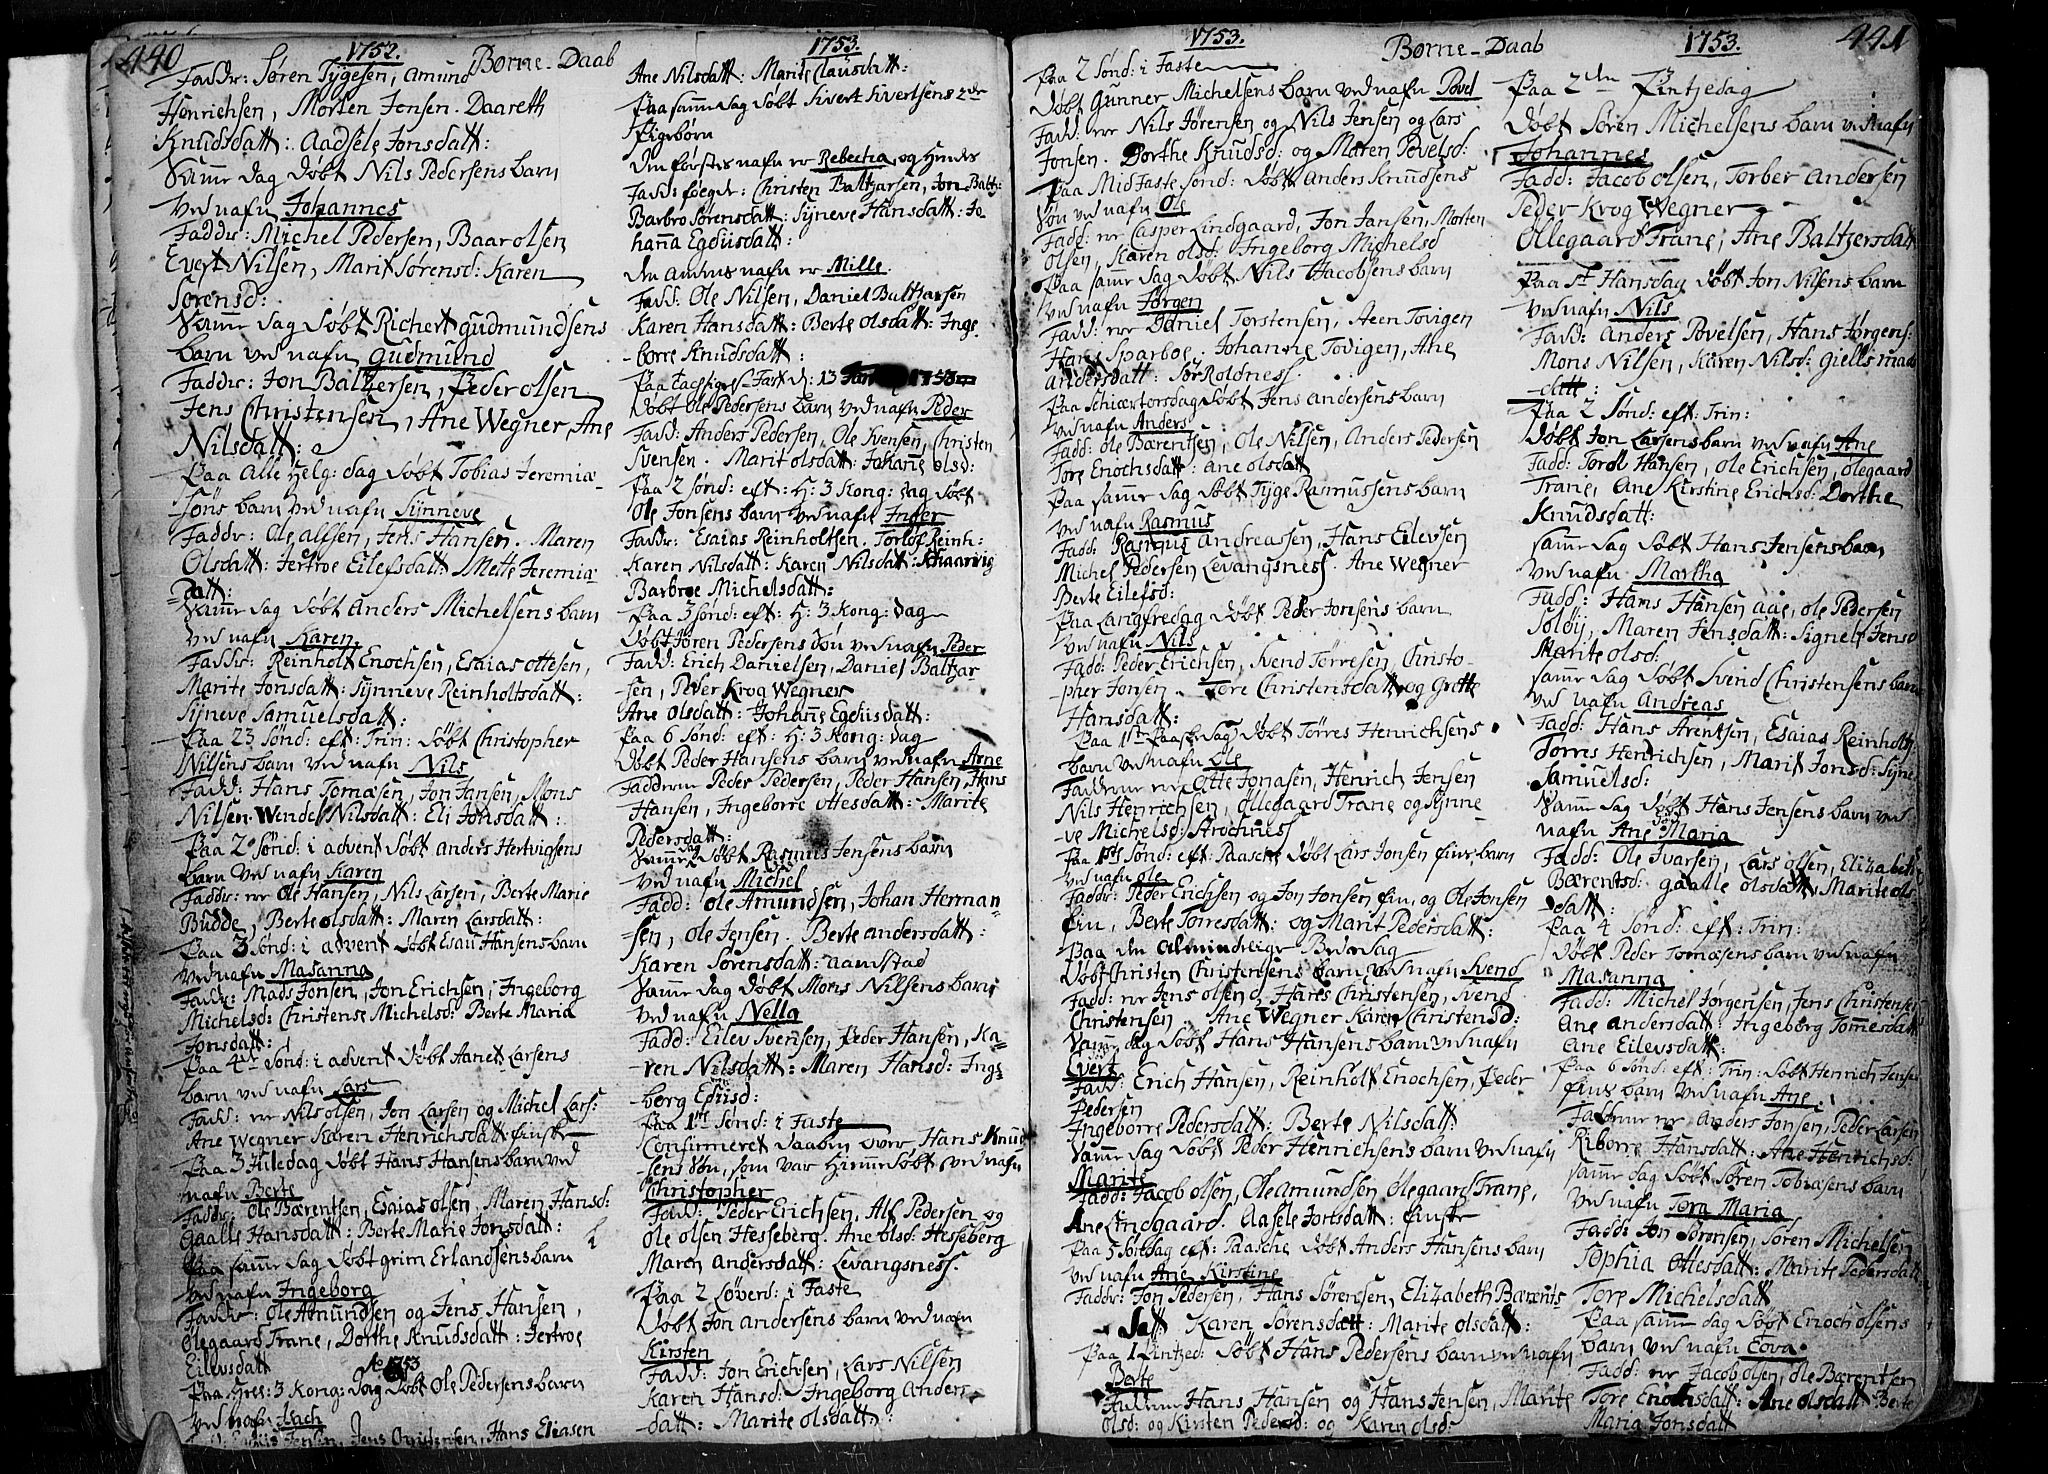 440
1752.
Børne-Daab
1753.
Faddr: Søren Tygesen, Amund
Henrichsen, Morten Jensen. Daareth
Knudsdatt: Aadsele Jonsdatt:
Samme dag døbt Nils Pedersens barn
ved nafn Johannes
Faddr: Michel Pedersen, Baar olsen
Evert Nilsen, Marit Sørensd: Karen
Sørensd:
Samme dag døbt Richert Gudmundsens
barn ved nafn Gudmund
Faddr: Jon Baltzersen, Peder olsen
Jens Christensen, Ane Wegner, Ane
Nilsdatt:
Paa Alle Helg: dag døbt Tobias Jeremiæ-
søns barn ved nafn Sÿnneve
Faddr: Ole alfsen, Jens Hansen. Maren
Olsdatt: Jertroe Eilefsdatt: Mette Jeremiæ
datt:
Samme dag døbt Anders Michelsens barn
ved nafn Karen.
Faddr: Reinholt Enochsen, Esaias ottesen,
Marite Jonsdatt: Sÿnneve Reinholtsdatt:
Sÿneve Samuelsdatt:
Paa 23 Sønd: eft: Trin: døbt Christopher
Nilsens barn ved nafn Nils
Fadd: Hans Tomæsen, Jon Jansen, Mons
Nilsen. Wendel Nilsdatt: Eli Jonsdatt:
Paa 2 Sønd: i advent døbt Anders Hertvigsens
barn ved nafn Karen
Faddr: er Ole Hansen, Nils Larsen, Berte Marie
Budde, Berte olsdatt: Maren Larsdatt:
Paa 3 Sønd: i advent døbt Esau Hansens barn
ved nafn Masanna
Faddr: Mads Jonsen, Jon Erichsen, Ingeborg
Michelsd: Christense Michelsd: Berte Maria
Jonsdatt:
Paa 4de Sønd: i advent døbt Aanet Larsens
barn ved nafn Lars
Fadd: er Nils olsen, Jon Larsen og Michel Lars:
Ane Wegner Karen Henrichsdatt:
Paa 3 Juledag døbt Hans Hansens barn ved
nafn Berte
Faddr: Ole Bærentsen, Esaias olsen, Maren Hansd:
Gaalle Hansdatt: Berte Marie Jonsdatt:
Paa samme dag døbt grim Erlandsens barn
ved nafn Ingeborg
Faddr: Ole Amundsen og Jens Hansen,
Olegaard Trane, Dorthe Knudsdatt: Jertroe
Eilevsdatt
Ao 1753
Paa H: 3 Kong: dag døbt Ole Pedersens barn
ved nafn
Jens Christensen, Hans Eliasen
Ane Nilsdatt: Marite Clausdatt:
Paa samme dag døbt Sivert Sivertsens 2de
Pigebørn
Den førstes nafn er Rebecha, og hendes
Fadd: følger: Christen Baltzarsen, Jon Baltz:
Barbro Sørensdatt: Sÿneve Hansdatt: Jo
hanna Egdiisdatt:
Den andens nafn er Mille.
Fadd: Ole Nilsen, Daniel Baltzarsen
Karen Hansdatt: Berte Olsdatt: Inge
borre Knudsdatt:
døbt Ole Pedersens barn ved nafn Peder
Fadd: Anders Pedersen, Ole Svensen, Christen
Svensen. Marit olsdatt: Johanne Olsd:
Paa 2 Sønd: eft: H: 3 Kong: dag døbt
Ole Jonsens barn ved nafn Inger
Faddr: Esaias Reinholtsen. Torlof Reinh:
Karen Nilsdatt: Karen Nilsdatt: Skaarvig
Barbroe Michelsdatt:
Paa 3 Sønd: eft: H: 3 Kong: dag
Døbt Jøren Pedersens søn ved nafn Peder
Fadd: Erich Danielsen, Daniel Baltzar
sen, Peder Krog Wegner
Ane Olsdatt: Johanne Egdiisdatt:
Paa 6 Sønd: eft: H: 3 Kong: dag
døbt Peder Hansens barn ved nafn Arne
Fadderne Peder Pedersen, Peder Hansen, Hans
Hansen, Ingeborre Ottesdatt: Marite
Pedersdatt:
Samme dag døbt Rasmus Jensens barn
ved nafn Michel
Fadd: Ole Amundsen, Johan Herman-
sen, Ole Jensen. Berte Andersdatt:
Karen Sørensdatt: aamstad
Samme dag døbt Mons Nilsens barn
ved nafn Nella
Fadd: Eilev Svensen, Peder Hansen, Ka-
ren Nilsdatt: Maren Hansd: Inge
borg Ediisd:
Paa 1ste Sønd: i Faste
Confirmeret daaben over Hans Knud
sens søn, som var hiemmedøbt, ved nafn
Christopher
Fadd: Peder Erichsen, Alf Pedersen og
Ole Olsen Hesseberg. Ane Olsd: Hesseberg
Maren Andersdatt: Levangsness.
Paa 2 i Faste
Døbt Jon Andersens barn ved nafn
Kirsten
Fadd: Jon Erichsen, Lars Nilsen
Karen Hansd: Ingeborg Anders
datt: Marite Olsdatt:
1753.
Børne-Daab
1753.
441
Paa 2 Sønd: i Faste
Døbt Gunner Michelsens barn ved nafn Povel
Fadd: er Nils Jørensen og Nils Jensen og Lars
Jonsen. Dorthe Knudsd: og Maren Povelsd:
Paa Midfaste Sønd: døbt Anders Knudsens
søn ved nafn Ole
Fadd: er Casper Lindgaard, Jon Jansen, Morten
Olsen, Karen olsd: Ingeborg Michelsd
Paa samme dag døbt Nils Jacobsens barn
ved nafn Jørgen
Fadd: er Daniel Torstensen, Aeen Tovigen
Hans Sparboe. Johanne Tovigen, Ane
Andersdatt: Sør Roldness
Paa Schiærtorsdag døbt Jens Andersens barn
ved nafn Anders
Fadd: Ole Bærentsen, Ole Nilsen, Anders Pedersen
Tore Enochsdatt: Ane olsdatt
Paa samme dag døbt Tÿge Rasmussens barn
ved nafn Rasmus
Fadd: Rasmus Andreassen, Hans Eilevsen
Michel Pedersen Levangsness. Ane Wegner
Berte Eilefsd:
Paa Langfredag døbt Peder Jonsens barn
ved nafn Nils
Fadd: Peder Erichsen, Svend Tørresen, Christo-
pher Jonsen. Tore Christensdatt og Grete
Hansdatt:
Paa 1ste Paaske dag døbt Tørres Henrichsens
barn ved nafn Ole
Fadderne er Otte Jonasen, Henrich Jensen
Nils Henrichsen, Øllegaard Trane og Sÿnne
ve Michelsd: Arochness
Paa 1ste Sønd: eft: Paasche døbt Lars Jonsen fins barn
ved nafn Ole
Faddr: Peder Erichsen og Jon Jonsen fin, og Ole Jonsen
fin, Berte Torresdatt: og Marit Pedersdatt:
Paa den almindelige Bededag
Døbt Christen Christensens barn ved nafn Svend
Fadd: er Jens olsen, Hans Christensen, Svend
Christensen. Ane Wegner Karen Christensd:
Samme dag døbt Hans Hansens barn ved nafn
Evert
Fadd: Erich Hansen, Reinholt Enochsen, Peder
Pedersen
Ingeborre Pedersdatt: Berte Nilsdatt:
Samme dag døbt Peder Henrichsens barn ved nafn
Marite
Fadd: Jacob olsen, Ole Amundsen Ølegaard Trane,
Ane Lindgaard. Aasele Jonsdatt:
Paa 5 Søndag eft: Paasche døbt Anders Hansens barn
ved nafn Ane Kirstine
Faddr: Jon Pedersen, Hans Sørensen, Elizabeth Bærents
datt Karen Sørensdatt: Marite olsdatt:
Paa 1 Pintzed: døbt Hans Pedersens barn ved nafn
Berte
Fadderne Hans Hansen og Hans Jensen, Marite
Olsd: og Kirsten Pedersd: og Karen olsd:
Paa 2den Pintzedag
Døbt Søren Michelsens barn ved nafn
Johannes
Fadd: Jacob Olsen, Torber Andersen
Peder Krog Wegner
Øllegaard Trane, Ane Baltzersdatt
Paa St Hansdag døbt Jon Nilsens barn
ved nafn Nils
Fadd: Anders Povelsen, Hans Jørgens:
Mons Nilsen, Karen Nilsd: Giellsmads
datt:
Paa 2 Sønd: eft: Trin:
Døbt Jon Larsens barn ved nafn Ane
Fadd: Torol Hansen, Ole Erichsen, Ølegaard
Trane, Ane Kirstine Erichsd: Dorthe
Knudsdatt:
samme dag døbt Hans Jensens barn
ved nafn Martha
Fadd: Hans Hansen aae, Ole Pedersen
Soløÿ, Maren Jensdatt: Signele Jensd
Marite olsd:
samme dag døbt Svend Christensens barn
ved nafn Andreas
Fadd: Hans Arentsen, Esaias Reinholts
Torres Henrichsen, Marit Jonsd: Sÿne
Samuelsd:
Samme dag døbt Hans Jensens barn ved
nafn Ane Maria
Fadd: Ole Ivarsen, Lars olsen, Elizabeth
Bærentsd: gaalle olsdatt: Marite ols
datt:
Paa 4 Sønd: eft: Trin:
Døbt Peder Tomæsens barn ved nafn
Masanna
Fadd: Michel Jørgensen, Jens Christensen
Ane Andersdatt: Ingeborg Tommesdatt
Ane Eilevsdatt:
Paa 6 Sønd: eft: Trin: døbt Henrich Jense
fins barn ved nafn Ane
Fadderne er Anders Jonsen, Peder Larsen
Riborre Hansdatt: Ane Henrichsd:
samme dag døbt Søren Tobiasens barn
ved nafn Tora Maria
Fadd: Jon Sørensen, Søren Michelsen
Sophia Ottesdatt: Marite Pedersdatt:
Tore Michelsdatt
Paa samme dag døbt Enoch Olsens
barn ved nafn
Fadd: er Jacob Olsen, Ole Bærentsen
Tore Enochsdatt: Ane Olsdatt: Berte
Maria Jonsdatt: